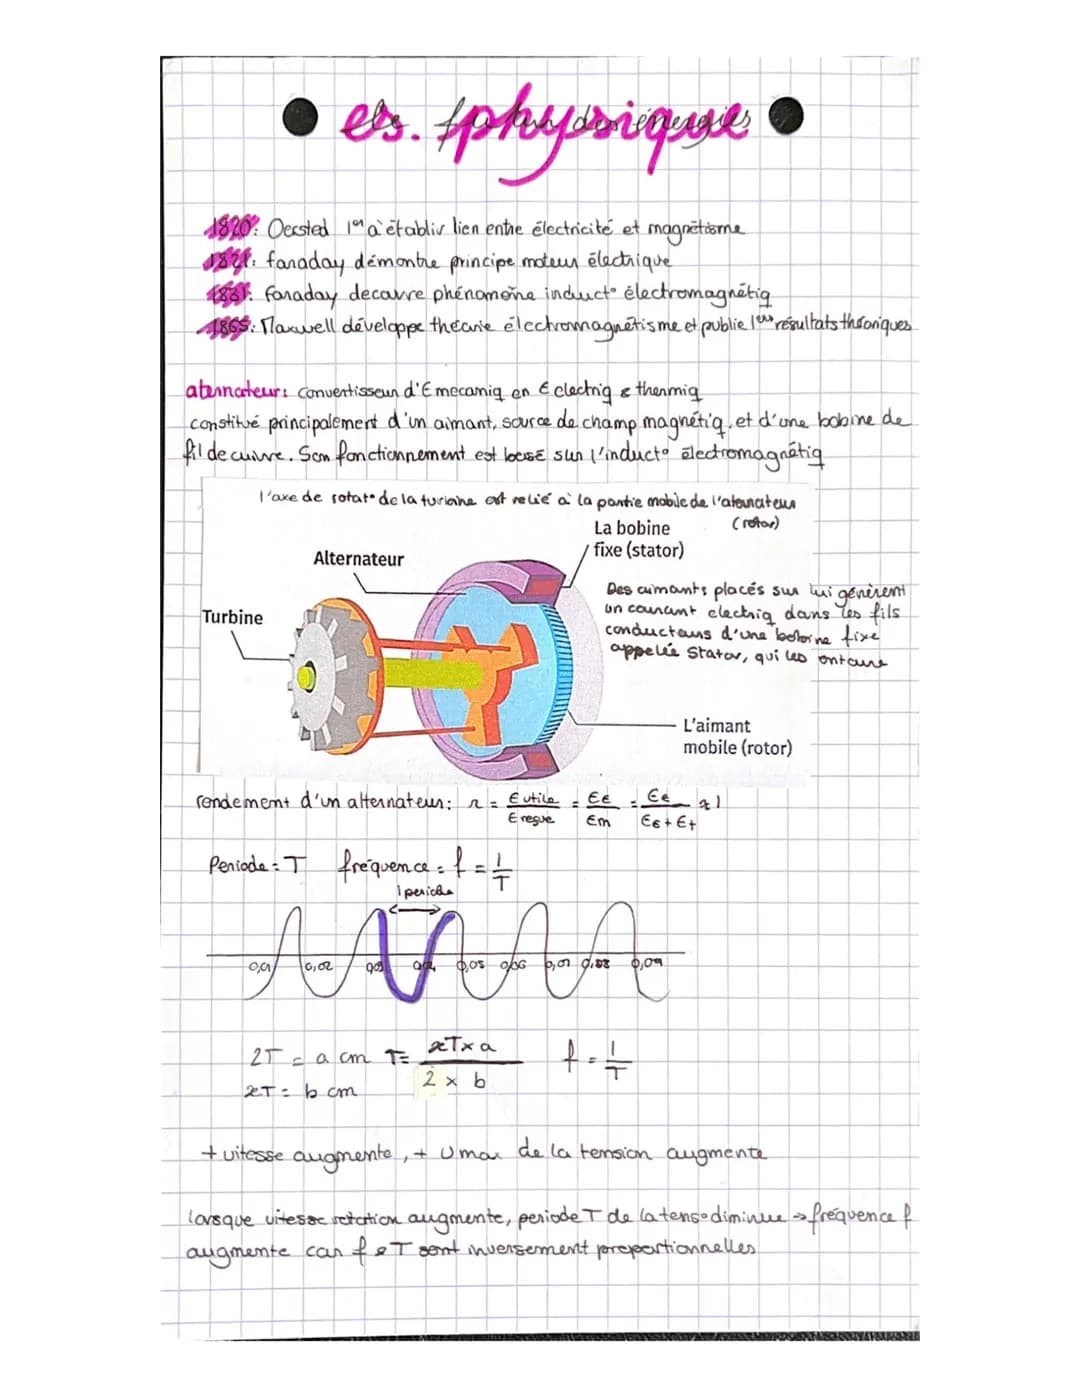 es. physique
futur des énergies
1820: Oersted 1er à établir lien entre électricité et magnétisme
1821: faraday démontre principe moteur électrique
1831: faraday decouvre phénomène induct° électromagnétiq
1865: Maxwell développe théorie électromagnétisme et publie 1ers résultats théoriques
alternateur: convertisseur d'E mecaniq en E electriq & thermiq
constitué principalement d'un aimant, source de champ magnétiq, et d'une bobine de
fil de cuivre. Son fonctionnement est basé sur l'induct° électromagnétiq
l'axe de rotat° de la turbine est relié à la partie mobile de l'alternateur
(rotor)
La bobine
fixe (stator)
Alternateur
Turbine
Des aimants placés sur lui génèrent
un courant electriq dans les fils
conducteurs d'une bobine fixe
appelée Stator, qui les entoure
L'aimant
mobile (rotor)
rendement d'un alternateur: r = E utile / E reçue = Ee / Em = Ee / Ee + Et ≈ 1
Periode = T fréquence = f = 1/T
1 periode
0,01 0,02 0,03 0,04 0,05 0,06 0,07 0,08 0,09
2T = a cm T = xT x a / 2 x b f = 1/T
xT = b cm
+ vitesse augmente, + U max de la tension augmente
lorsque vitesse rotation augmente, periode T de la tens° diminue → fréquence f
augmente car f & T sont inversement proportionnelles